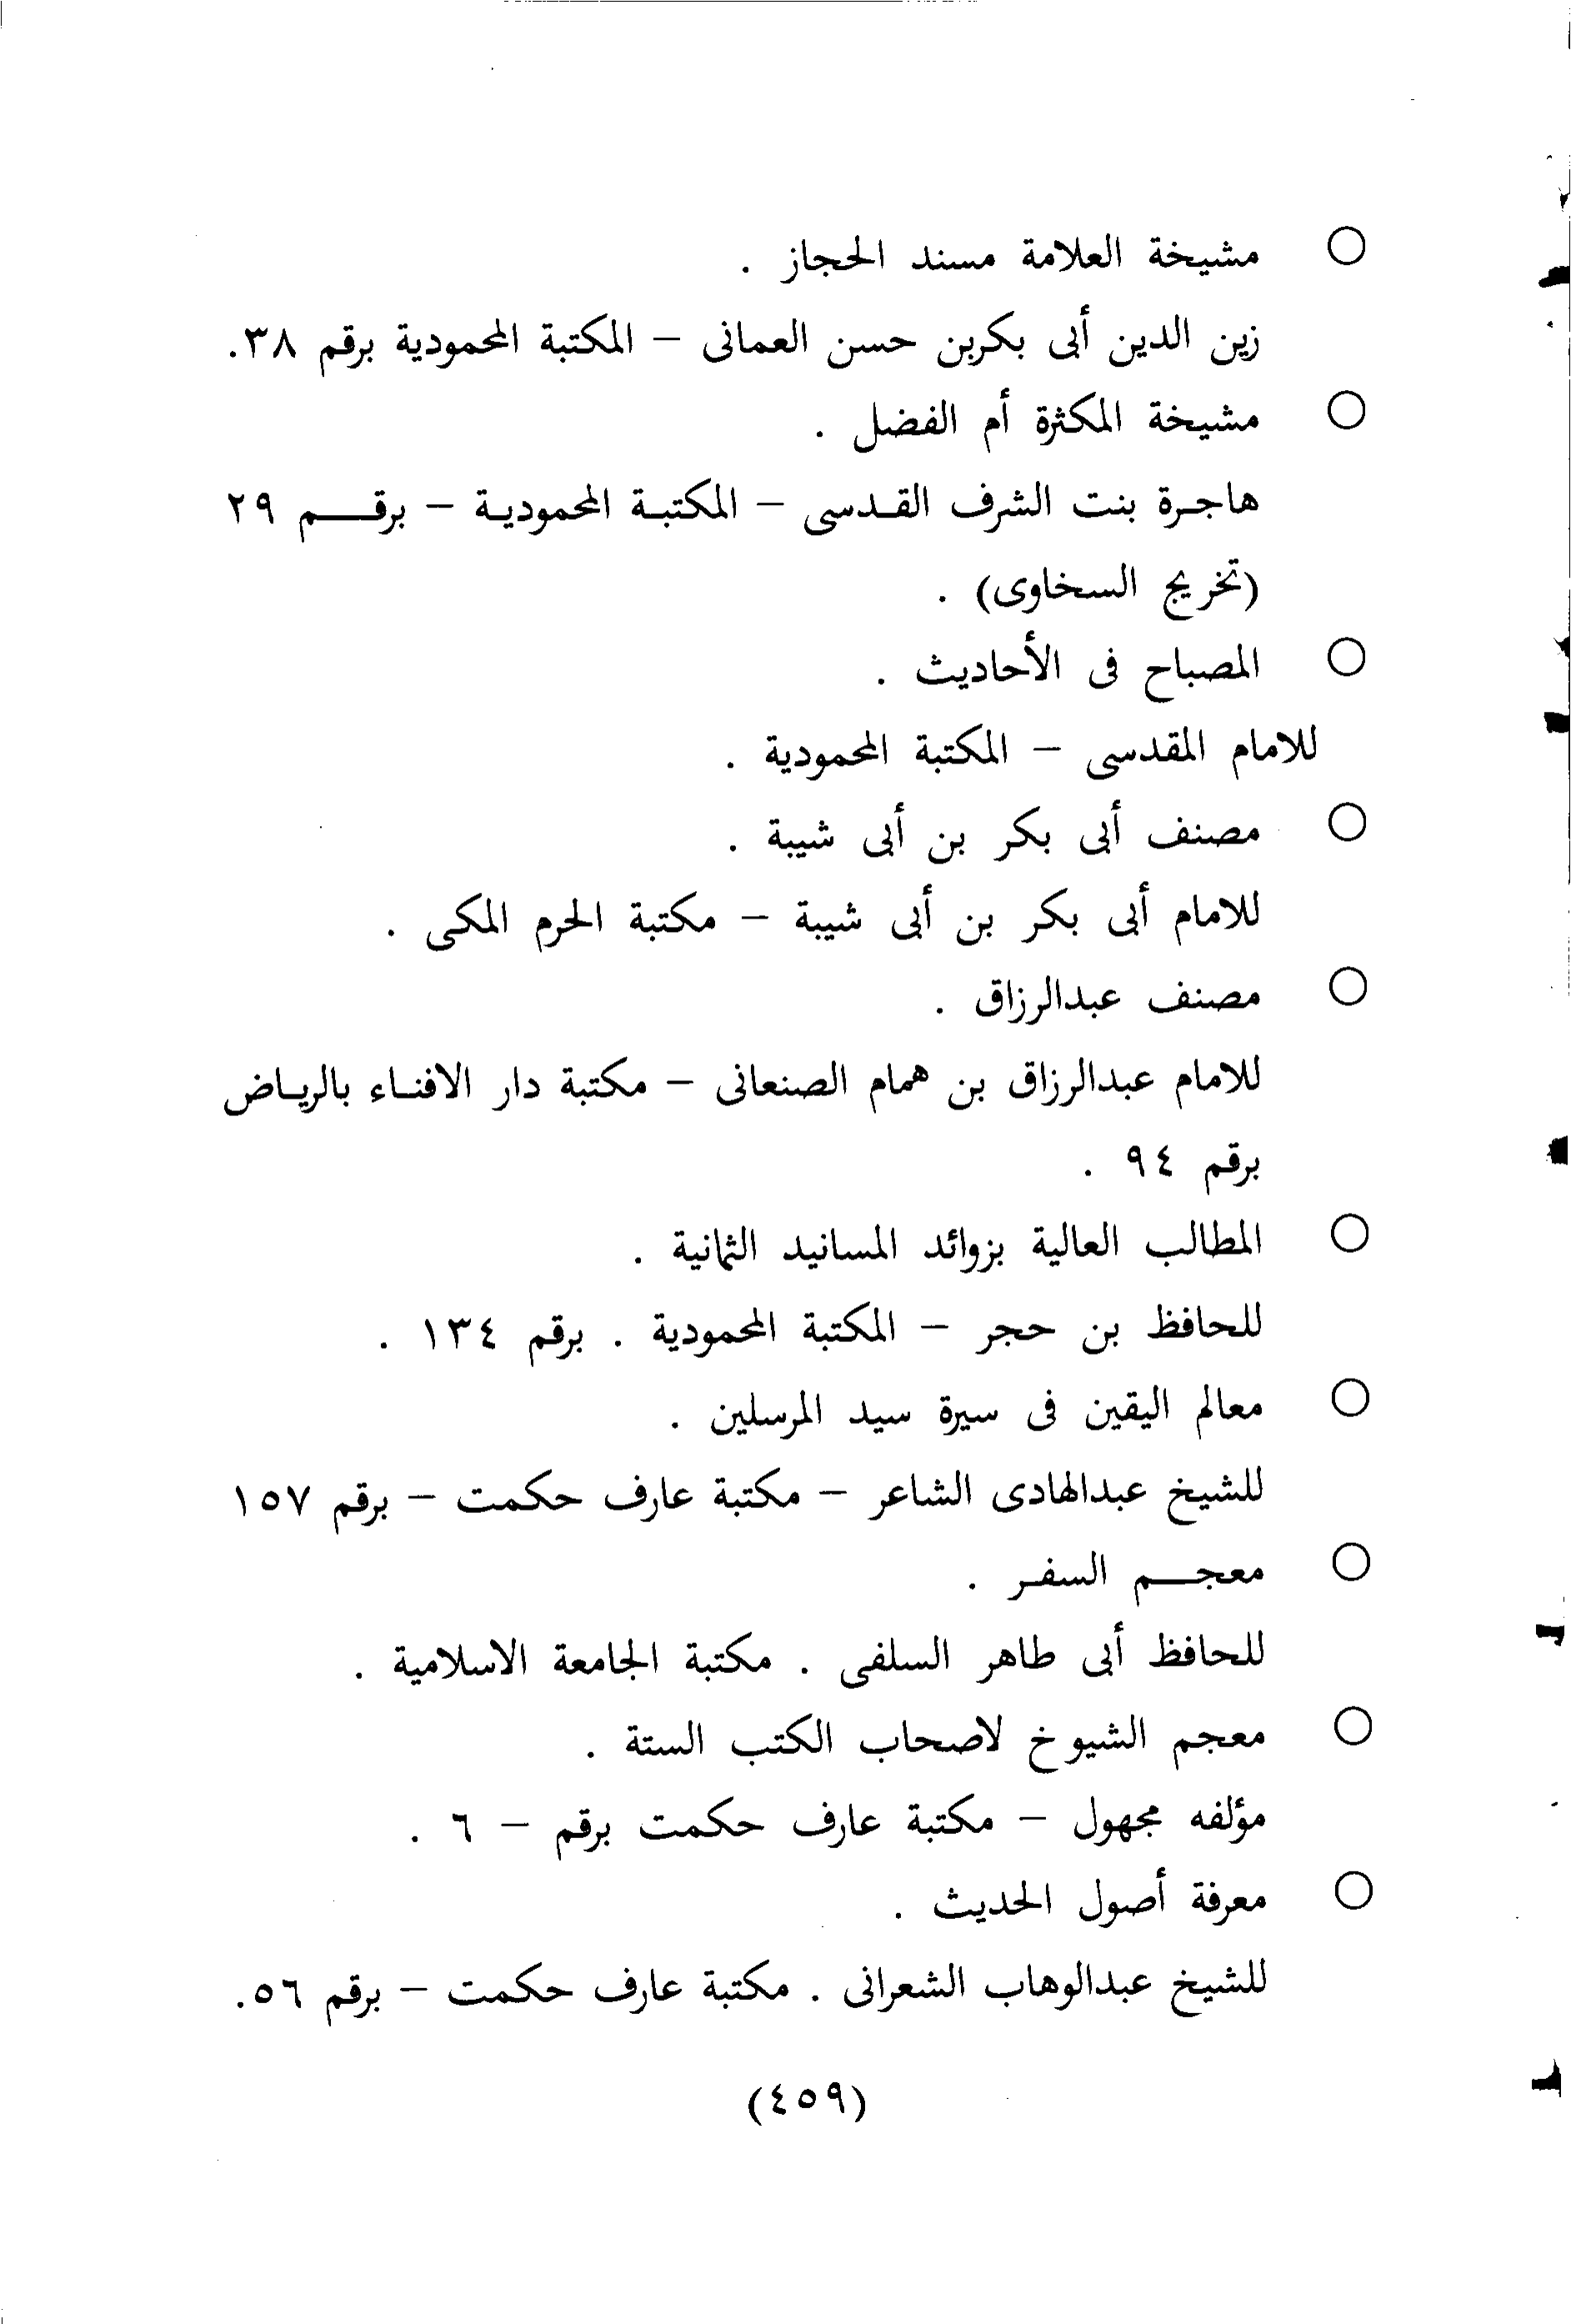 ○ مشيخة العلامة مسند الحجاز .
زين الدين أبى بكربن حسن العمانى – المكتبة المحمودية برقم ٣٨.
○ مشيخة المكثرة أم الفضل .
هاجرة بنت الشرف القدسى – المكتبة المحمودية – برقم ٢٩
(تخريج السخاوى) .
○ المصباح فى الأحاديث .
للامام المقدسى – المكتبة المحمودية .
○ مصنف أبى بكر بن أبى شيبة .
للامام أبى بكر بن أبى شيبة – مكتبة الحرم المكى .
○ مصنف عبدالرزاق .
للامام عبدالرزاق بن همام الصنعانى – مكتبة دار الافناء بالرياض
برقم ٩٤ .
○ المطالب العالية بزوائد المسانيد الثمانية .
للحافظ بن حجر – المكتبة المحمودية . برقم ١٣٤ .
○ معالم اليقين فى سيرة سيد المرسلين .
للشيخ عبدالهادى الشاعر – مكتبة عارف حكمت – برقم ١٥٧
○ معجم السفر .
للحافظ أبى طاهر السلفى . مكتبة الجامعة الاسلامية .
○ معجم الشيوخ لاصحاب الكتب الستة .
مؤلفه مجهول – مكتبة عارف حكمت برقم – ٦ .
○ معرفة أصول الحديث .
للشيخ عبدالوهاب الشعرانى . مكتبة عارف حكمت – برقم ٥٦.
(٤٥٩)